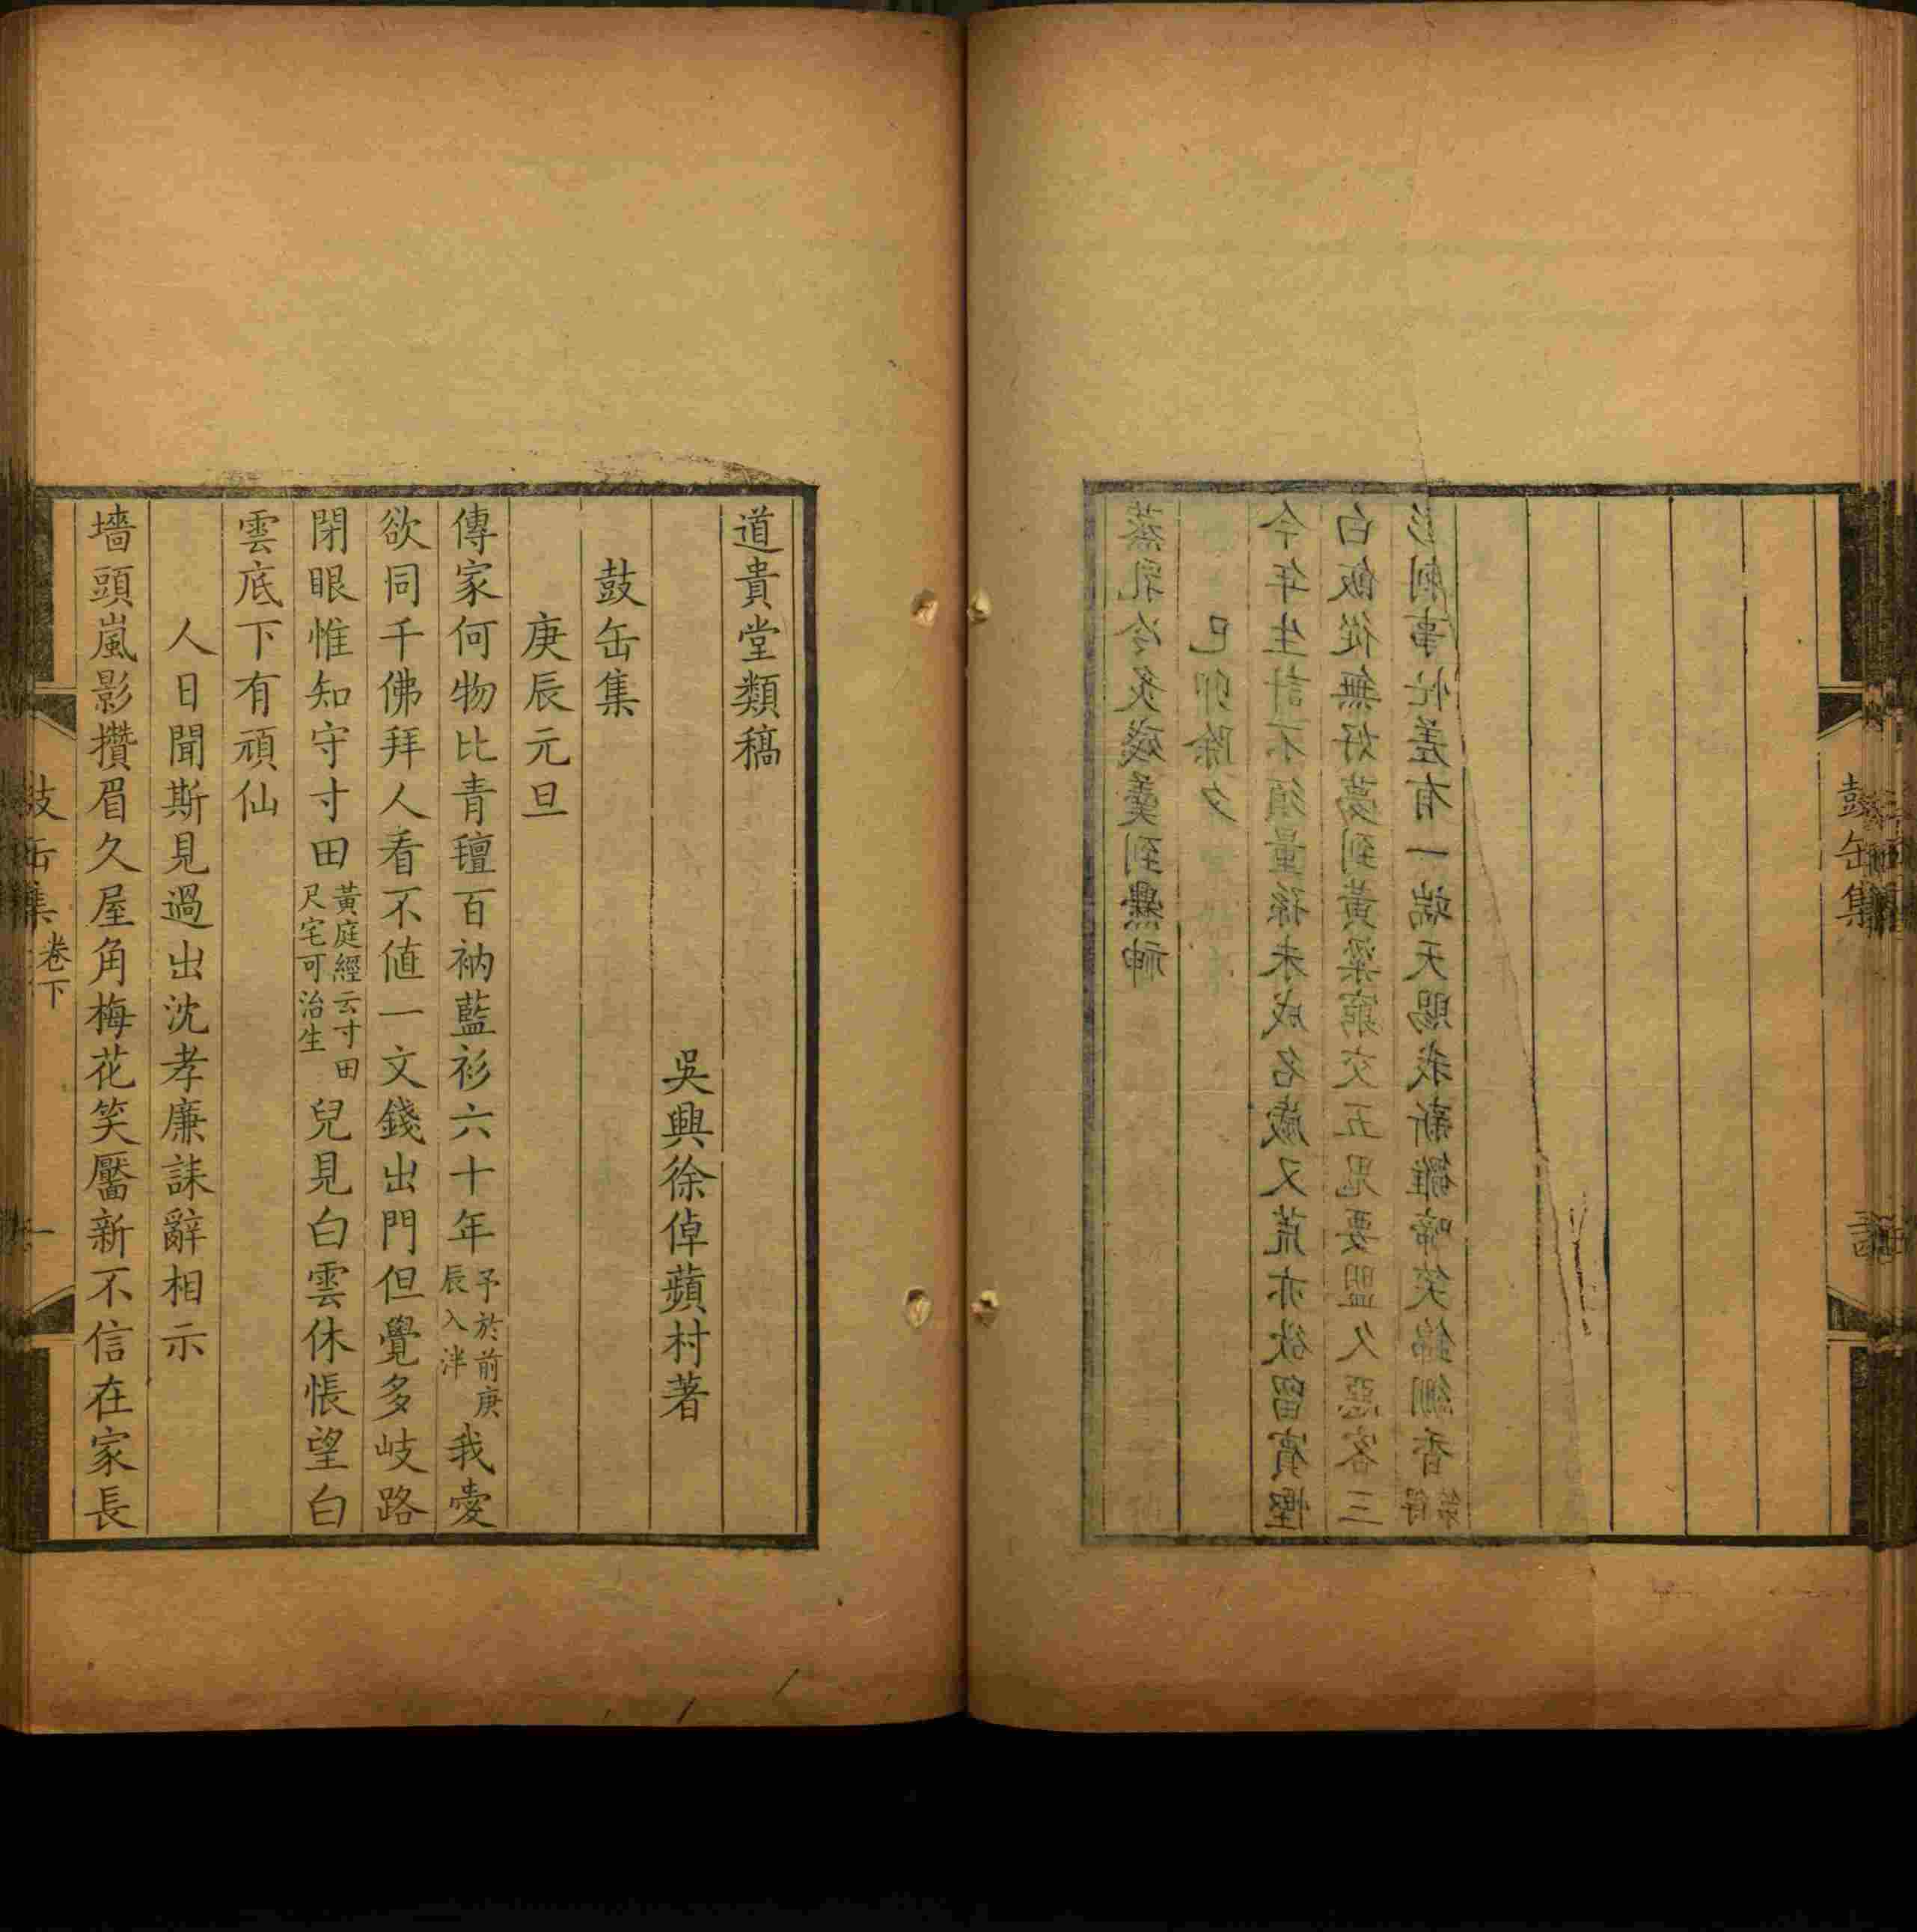 鼓缶集
己卯除夕
今年生計不須量孫未成名歲又荒亦欲留賓慳
白飯從無好夢到黃粱窮交五鬼要盟久惡客三
彭刺事忙差有一端天賜我新雛啼笑錦繃香
道貴堂類稿
吳興徐倬蘋村著
鼓缶集
庚辰元旦
傳家何物比青氊百衲藍衫六十年予於前庚辰入泮我愛
欲同千佛拜人看不値一文錢出門但覺多岐路
閉眼惟知守寸田黃庭經云寸田尺宅可治生兒見白雲休悵望白
雲底下有頑仙
人日聞斯見過出沈孝廉誄辭相示
墻頭嵐影攢眉久屋角梅花笑靨新不信在家長
鼓缶集 卷下 一